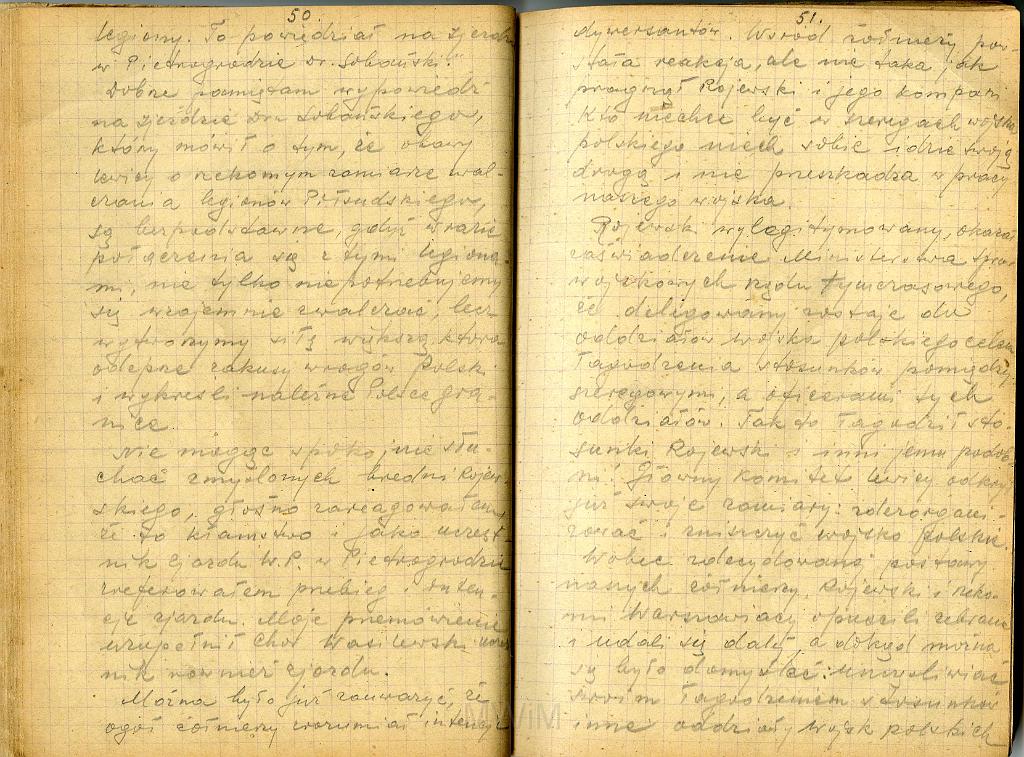 50.
legiony. To powiedział na zjeździe
w Pietrogrodzie Dr. Sobański."
Dobrze pamiętam wypowiedź
na zjeździe Dra Sobańskiego,
który mówił o tym, że obawy
lewicy o rzekomym zamiarze wal-
czania legionów Piłsudskiego,
są bezpodstawne, gdyż w razie
połączenia się z tymi legiona-
mi, nie tylko nie potrzebujemy
się wzajemnie zwalczać, lecz
wytworzymy siłę większą, która
odeprze zakusy wrogów Polski
i wykreśli należne Polsce gra-
nice.
Nie mogąc spokojnie słu-
chać zmyślonych bredni Rojew-
skiego, głośno zareagowałem,
że to kłamstwo i jako uczest-
nik Zjazdu W.P. w Pietrogrodzie
zreferowałem przebieg i inten-
cje zjazdu. Moje przemówienie
uzupełnił Chor. Wasilewski uczest
nik również zjazdu.
Można było już zauważyć, że
ogół żołnierzy zrozumiał intencje
51.
dywersantów. Wśród żołnierzy pow-
stała reakcja, ale nie taka jak
pragnął Rojewski i jego kompani.
Kto niechce być w szeregach wojska
polskiego niech sobie idzie swoją
drogą i nie przeszkadza w pracy
naszego wojska.
Rojewski wylegitymowany, okazał
zaświadczenie Ministerstwa Spraw
wojskowych rządu Tymczasowego,
że delegowany zostaje do
oddziałów wojska polskiego celem
łagodzenia stosunków pomiędzy
szeregowymi, a oficerami tych
oddziałów. Tak to łagodził sto-
sunki Rojewski i inni jemu podob-
ni. Główny Komitet lewicy odkrył
już swoje zamiary: zdezorgani-
zować i zniszczyć wojsko polskie.
Wobec zdecydowanej postawy
naszych żołnierzy, Rojewski i rzeko-
mi Warszawiacy opuścili zebranie
i udali się dalej, a dokąd można
się było domyśleć: uszczęśliwiać
swoim łagodzeniem stosunków
inne oddziały wojsk polskich
MWiM